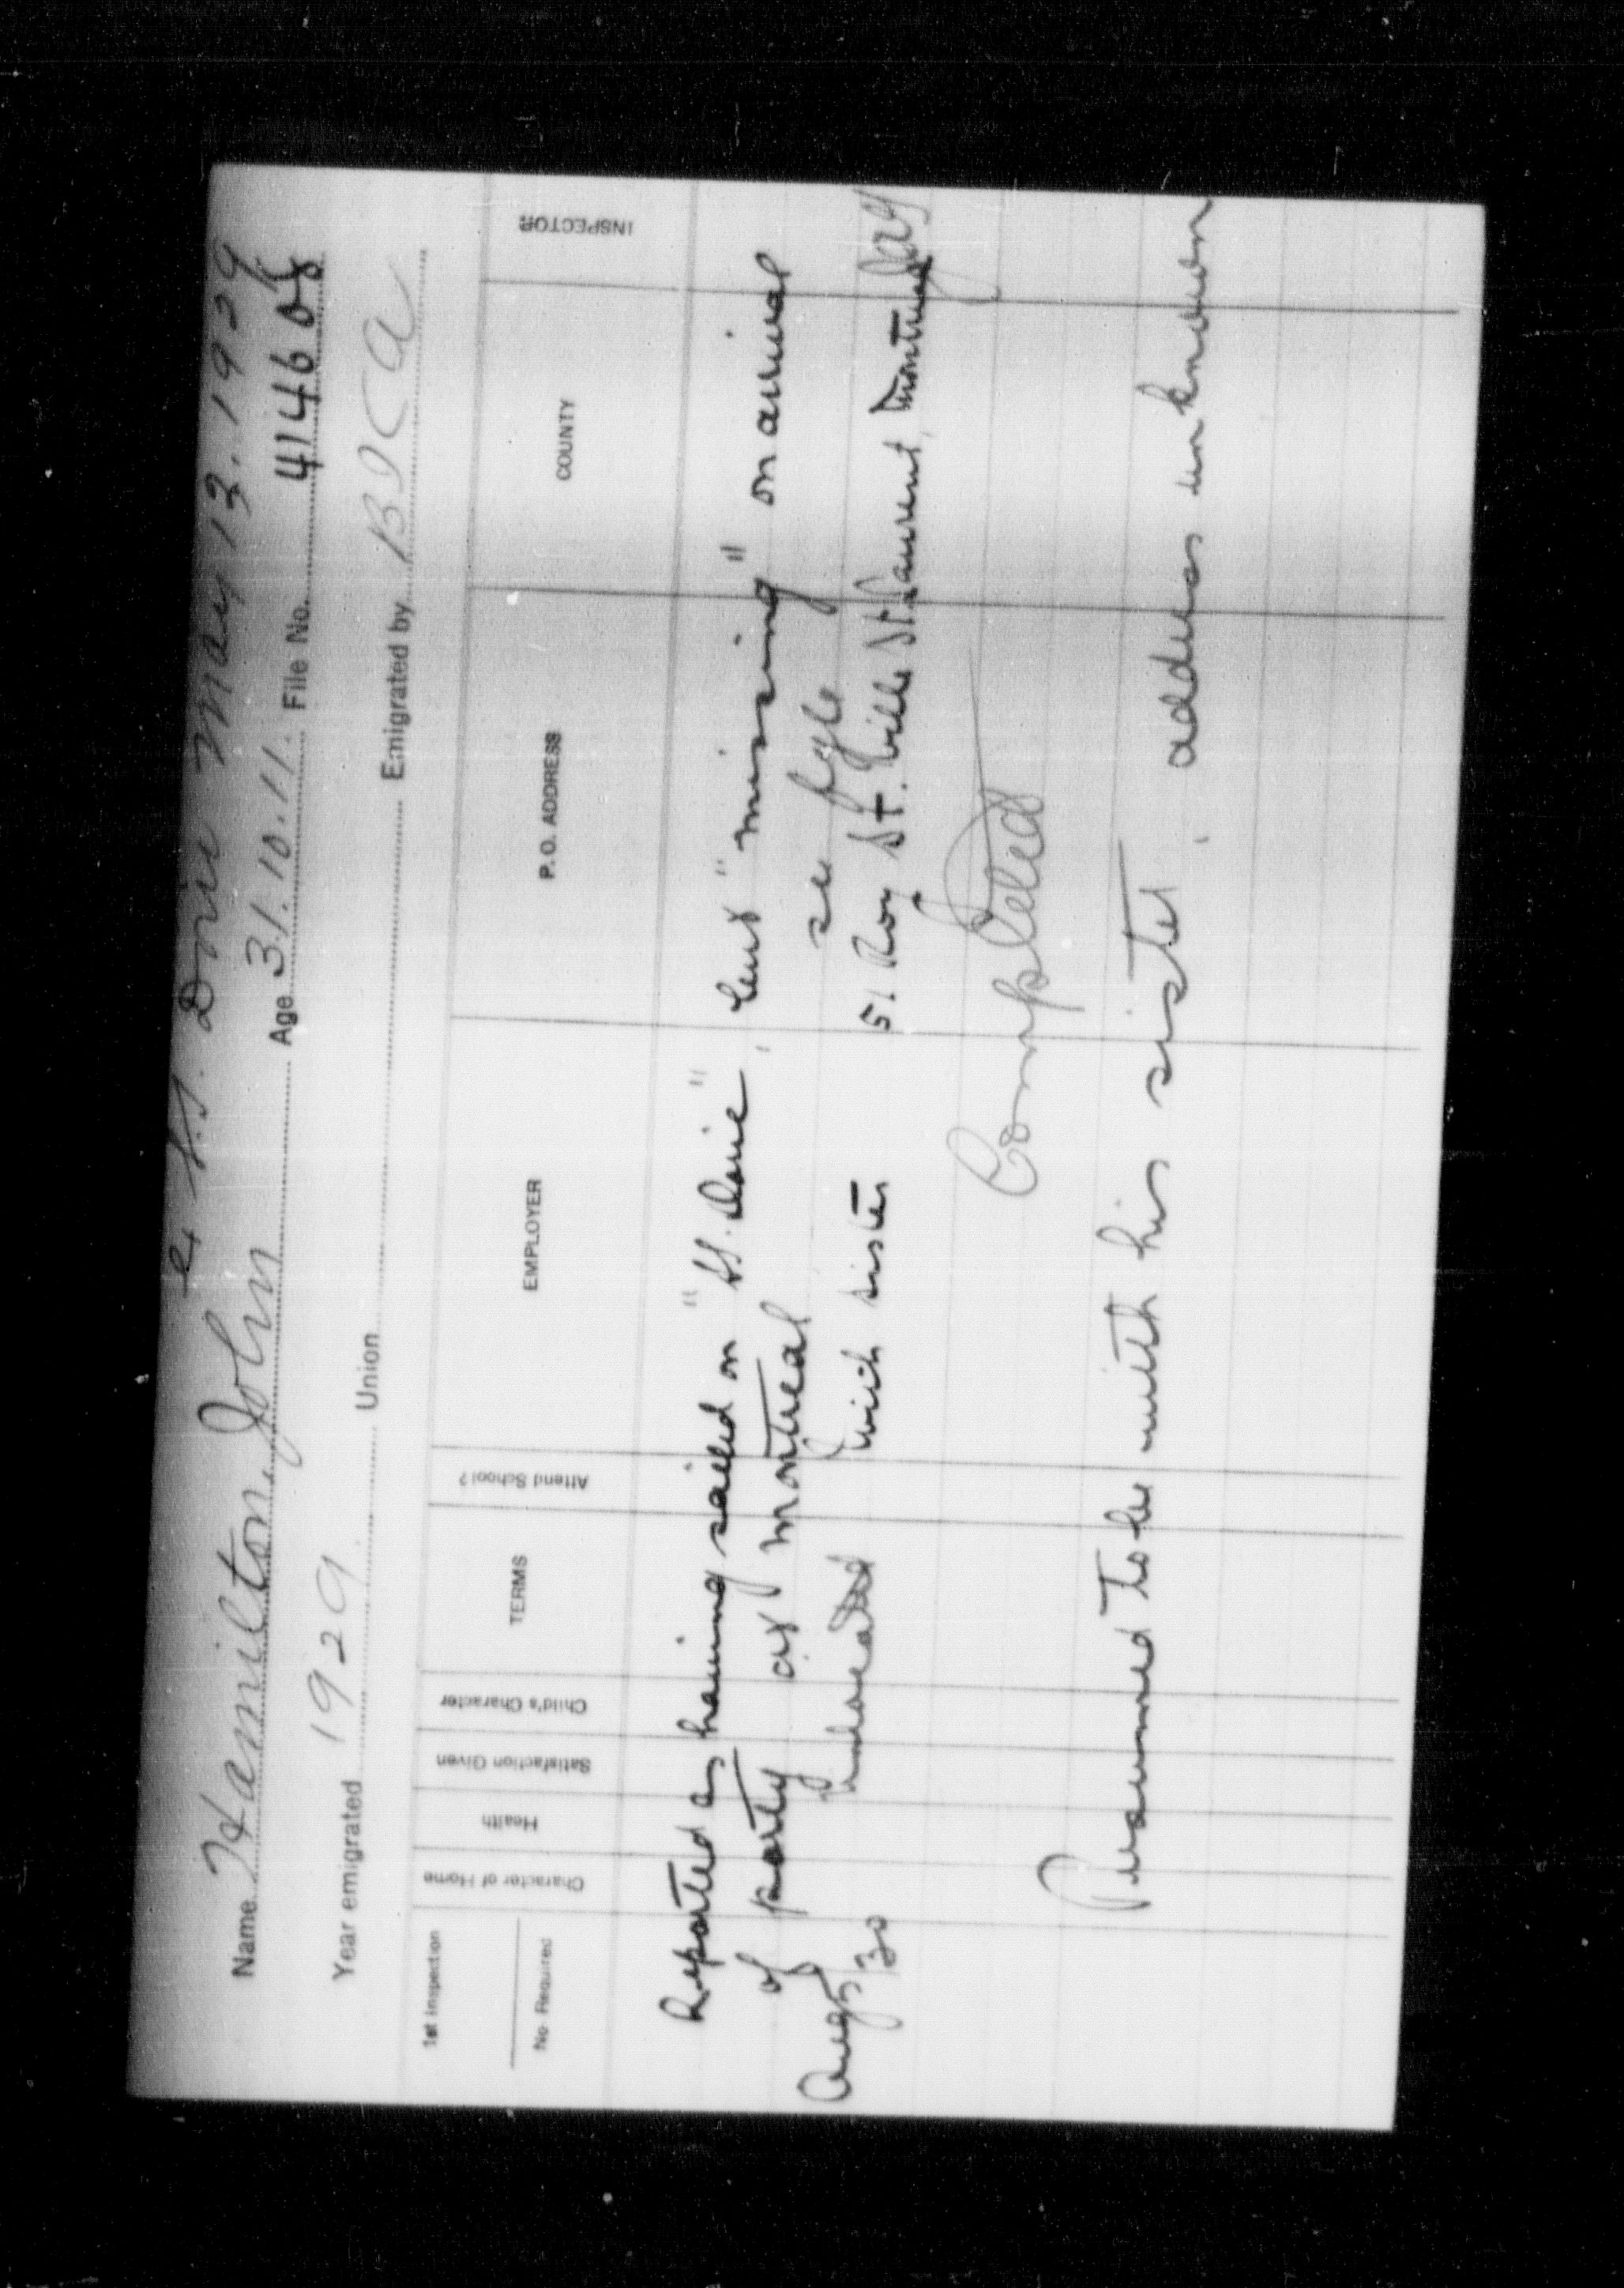 ex S.S. Doric May 13. 1929
Name Hamilton, John Age 31.10.11. File No. 414608
Year emigrated 1929 Union Emigrated by BICA
1st Inspection
No. Required
Character of Home
Health
Satisfaction Given
Child's Character
TERMS
Attend School?
EMPLOYER
P. O. ADDRESS
COUNTY
INSPECTOR
Reported as having sailed on "SS. Doric", but "missing" on arrival
of party at Montreal see fyle
Aug 5/30 with sister 51 Roy St. Ville St. Laurent, Montreal
Completed
Presumed to be with his sister, address unknown